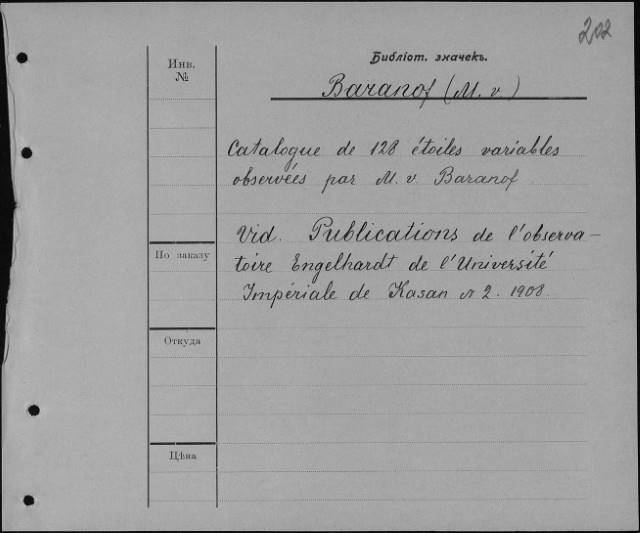 202
Инв.
№
Библіот. значекъ.
Baranof (M. v.)
Catalogue de 128 étoiles variables
observées par M. v. Baranof
Vid. Publications de l'observa-
toire Engelhardt de l'Université
Impériale de Kasan № 2. 1908.
По заказу
Откуда
Цѣна